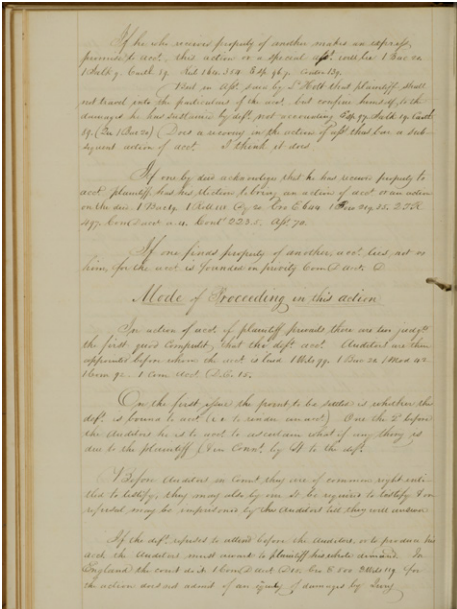 If he who receives property of another makes an express
promise to acct. this action or a special asst. will lie 1 Bac 20
1 Salk 9. Carth 89.
But in asst. said by Ld Holt that plaintiff shall
not travel into the particulars of the acct. but confine himself to the
damages he has sustained by deft. not accounting Salk 9. Carth
89. (1 Bac 20) Does a recovery in the action of asst. thus bar a sub-
sequent action of acct. I think it does
If one by deed acknowledges that he has received property to
acct. plaintiff has his Election to bring an action of acct. or an action
on the deed. 1 Bac 19. 1 Roll Cro E 644 2 T R
497.
If one finds property of another, acct. lies not vs
him, for the acct. is founded in privity Com D acct. D
Mode of Proceeding in this action
In action of acct. if plaintiff prevails there are two judgts.
the first quod computet, that the deft. acct. Auditors are then
appointed before whom the acct. is had 1 Bac 20 1 Mod 42
1 Com acct. 15.
On the first issue the point to be settled is whether the
deft. is bound to acct. (i.e. to render an acct.) On the 2d before
the Auditors he is to acct. to ascertain what if any thing is
due to the plaintiff (& in Connt. by St to the deft.
Before Auditors in Connt. they are of common right enti-
tled to testify, they may also by our St be required to testify & on
refusal may be imprisoned by the Auditors till they will answer
If the deft. refuses to attend before the Auditors, or to produce his
accts the Auditors must award to plaintiff his whole demand. In
England the court do it 1 Com D acct. Cro E
the action does not admit of an inquiry of damages by Jury